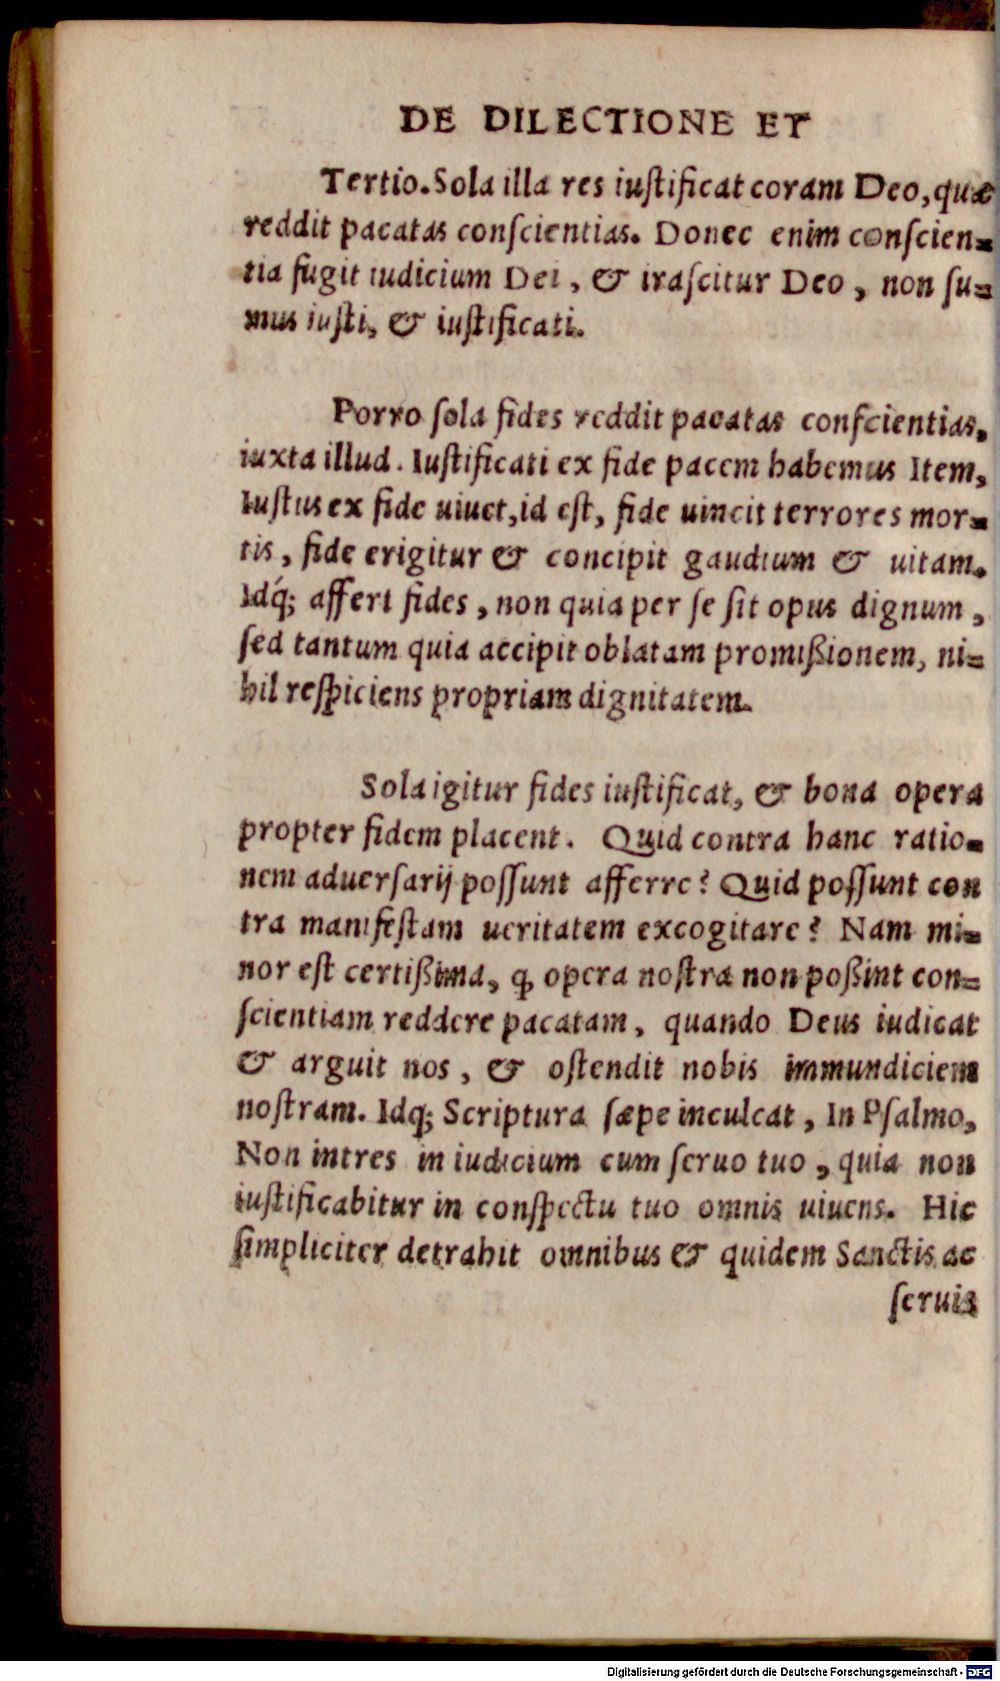 DE DILECTIONE ET
Tertio. Sola illa res iuſtificat coram Deo, quæ
reddit pacatas conſcientias. Donec enim conſcien-
tia fugit iudicium Dei, & iraſcitur Deo, non ſu-
mus iuſti, & iuſtificati.
Porro ſola fides reddit pacatas conſcientias,
iuxta illud. Iuſtificati ex fide pacem habemus Item,
Iuſtus ex fide uiuet, id eſt, fide uincit terrores mor-
tis, fide erigitur & concipit gaudium & uitam.
Idq́; affert fides, non quia per ſe ſit opus dignum,
ſed tantum quia accipit oblatam promißionem, ni-
hil reſpiciens propriam dignitatem.
Sola igitur fides iuſtificat, & bona opera
propter fidem placent. Quid contra hanc ratio-
nem aduerſarij poſſunt afferre? Quid poſſunt con
tra manifeſtam ueritatem excogitare? Nam mi-
nor eſt certißima, ꝙ opera noſtra non poßint con-
ſcientiam reddere pacatam, quando Deus iudicat
& arguit nos, & oſtendit nobis immundiciem
noſtram. Idq; Scriptura ſæpe inculcat, In Pſalmo,
Non intres in iudicium cum ſeruo tuo, quia non
iuſtificabitur in conſpectu tuo omnis uiuens. Hic
ſimpliciter detrahit omnibus & quidem Sanctis ac
ſeruis
Digitalisierung gefördert durch die Deutsche Forschungsgemeinschaft - DFG